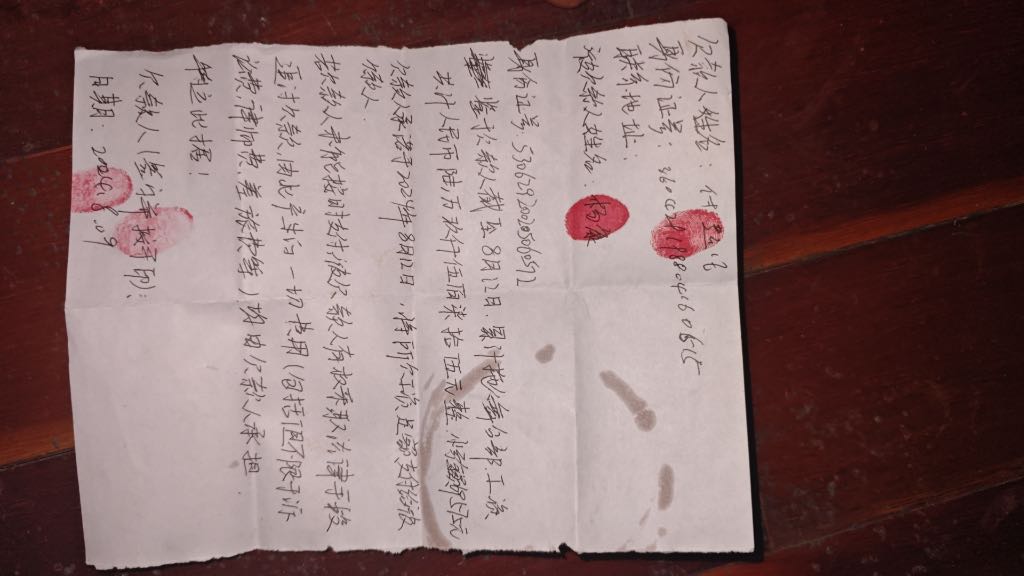 欠款人姓名：
身份证号：
联系地址：
被欠款人姓名：杨
身份证号：530629200306072
鉴于欠款人截至8月12日.累计拖欠全部工资
共计人民币陆万玖仟伍佰柒拾伍元整
欠款人承诺于2024年8月12日，将所欠工资足额支付给被
欠款人
若欠款人未能按时支付被欠款人有权采取法律手段
追讨欠款,由此产生的一切费用（包括但不限于诉
讼费、律师费.差旅费等）均由欠款人承担.
特立此据！
欠款人（签字按手印）：
日期：2024.8.09